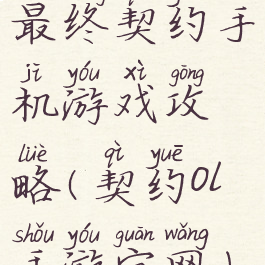 最终契约手
jī yóu xì gōng
机游戏攻
lüè qì yuē
略(契约Ol
shǒu yóu guān wǎng
手游官网)